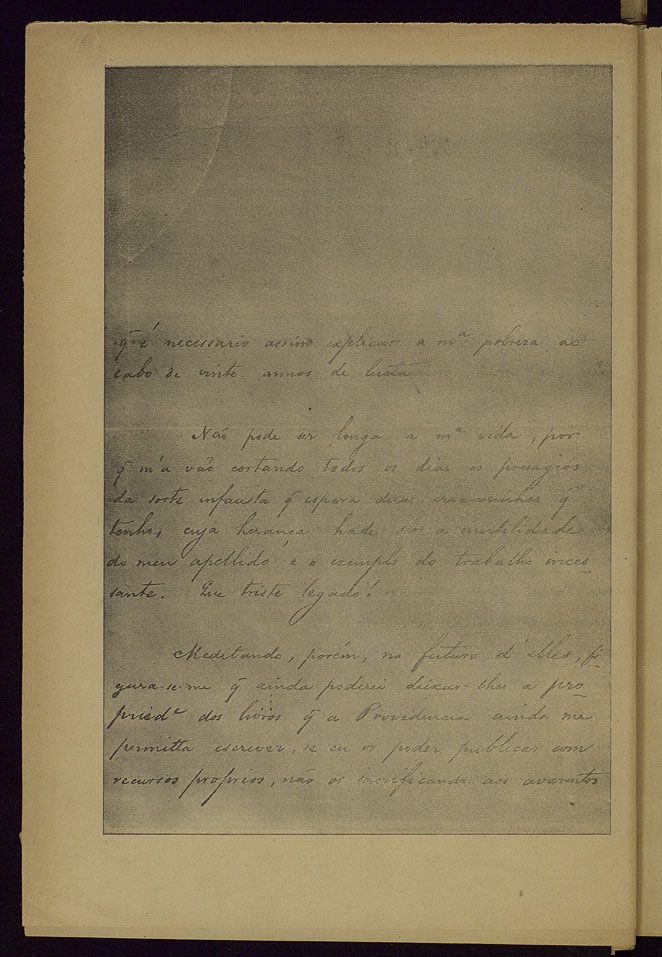 q̃ é necessario assim explicar a m.ª pobreza ao
cabo de vinte annos de lucta
Não pode ser longa a m.ª vida, pois
q̃ m'a vão cortando todos os dias os presagios
da sorte infausta q̃ espera duas creancinhas q̃
tenho, cuja herança hade ser a inutilidade
do meu apellido e o exemplo do trabalho inces-
sante. Que triste legado!
Meditando, porém, no futuro d'elles, fi-
gura-se-me q̃ ainda poderei deixar-lhes a pro-
pried.e dos livros q̃ a Providencia ainda me
permitta escrever, se eu os poder publicar com
recursos proprios, não os sacrificando aos avarentos